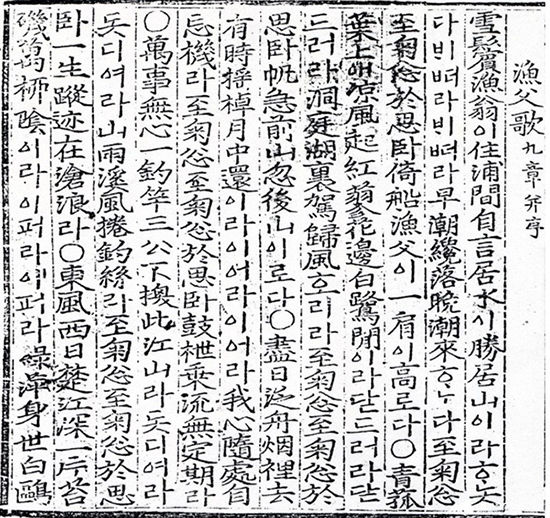 漁父歌九章幷序
雪鬢漁翁이住浦間自言居水이勝居山이라ᄒᆞ놋
다ᄇᆡᄠᅥ라ᄇᆡᄠᅥ라早潮纔落晩潮來ᄒᆞᄂᆞ다至匊忩
至匊忩於思臥倚船漁父이一肩이高로다○青菰
葉上애凉風起紅蓼花邊白鷺閒이라닫드러라닫
드러라洞庭湖裏駕歸風호리라至匊忩至匊忩於
思臥帆急前山忽後山이로다○盡日泛舟烟裡去
有時搖棹月中還이라이어라이어라我心隨處自
忘機라至匊忩至匊忩於思臥鼓枻乘流無定期라
○萬事無心一釣竿三公不換此江山라돗디여라
돗디여라山雨溪風捲釣絲라至匊忩至匊忩於思
臥一生蹤迹在滄浪라○東風西日楚江深一片苔
磯萬柳陰이라이퍼라이퍼라綠萍身世白鷗